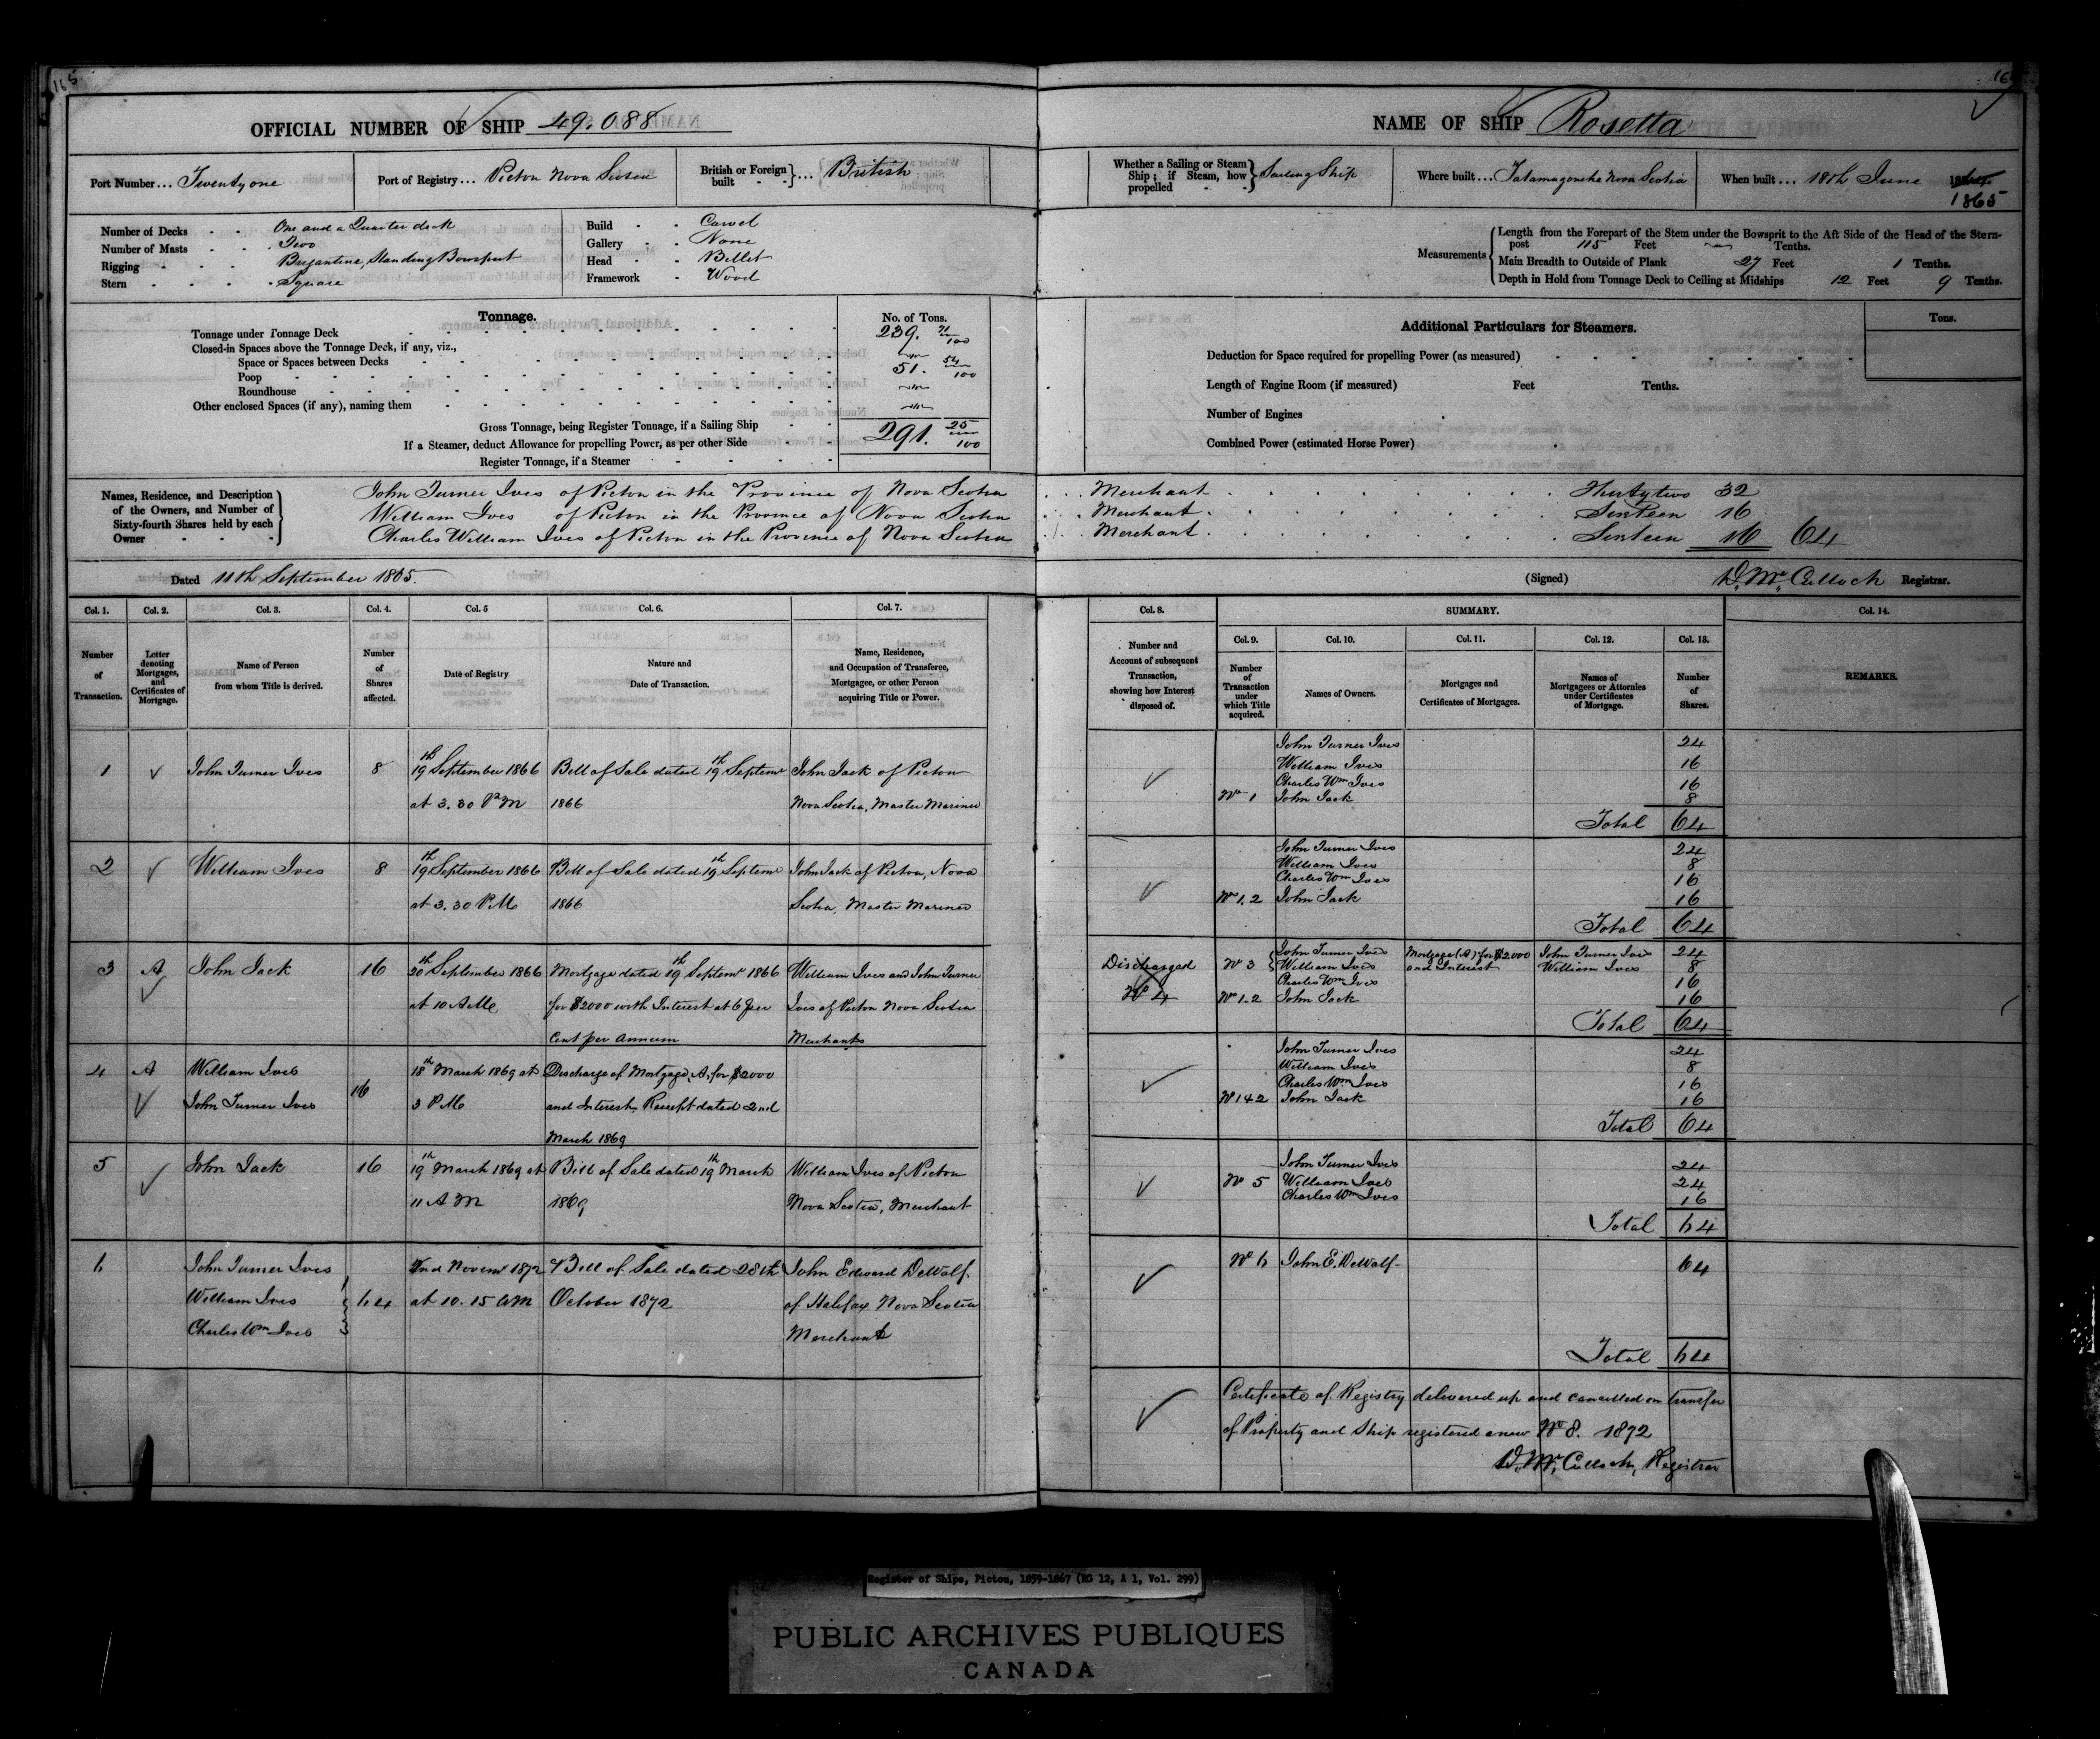 165
OFFICIAL NUMBER OF SHIP 49.088
Port Number... Twenty one
Port of Registry... Pictou Nova Scotia
British or Foreign built - - } ... British
Number of Decks - - One and a Quarter deck
Number of Masts - - Two
Rigging - - - Brigantine, Standing Bowsprit
Stern - - - - Square
Build - - Carvel
Gallery - - None
Head - - Billet
Framework - Wood
Tonnage.
No. of Tons.
Tonnage under Tonnage Deck 239. 71/100
Closed-in Spaces above the Tonnage Deck, if any, viz.,
Space or Spaces between Decks
Poop 51. 54/100
Roundhouse
Other enclosed Spaces (if any), naming them
Gross Tonnage, being Register Tonnage, if a Sailing Ship 291. 25/100
If a Steamer, deduct Allowance for propelling Power, as per other Side
Register Tonnage, if a Steamer
Names, Residence, and Description of the Owners, and Number of Sixty-fourth Shares held by each Owner - - -
John Turner Ives of Pictou in the Province of Nova Scotia
William Ives of Pictou in the Province of Nova Scotia
Charles William Ives of Pictou in the Province of Nova Scotia
Dated 11th September 1865.
Col. 1. Col. 2. Col. 3. Col. 4. Col. 5 Col. 6. Col. 7.
Number of Transaction.
Letter denoting Mortgages, and Certificates of Mortgage.
Name of Person from whom Title is derived.
Number of Shares affected.
Date of Registry
Nature and Date of Transaction.
Name, Residence, and Occupation of Transferee, Mortgagee, or other Person acquiring Title or Power.
1 John Turner Ives 8 19th September 1866 Bill of Sale dated 19th Septemr John Jack of Pictou
at 3.30 PM 1866 Nova Scotia, Master Mariner
2 William Ives 8 19th September 1866 Bill of Sale dated 19th Septemr John Jack of Pictou, Nova
at 3.30 PM 1866 Scotia, Master Mariner
3 A John Jack 16 20th September 1866 Mortgage dated 19th Septemr 1866 William Ives and John Turner
at 10 AM for $2000 with Interest at 6 per Ives of Pictou Nova Scotia
Cent per Annum Merchants
4 A William Ives 16 18th March 1869 at Discharge of Mortgage, A, for $2000
John Turner Ives 3 PM and Interest, Receipt dated 2nd
March 1869
5 John Jack 16 19th March 1869 at Bill of Sale dated 19th March William Ives of Pictou
11 AM 1869 Nova Scotia, Merchant
6 John Turner Ives 2nd Novemr 1872 Bill of Sale dated 28th John Edward DeWolf
William Ives 64 at 10.15 AM October 1872 of Halifax Nova Scotia
Charles Wm Ives Merchant
NAME OF SHIP Rosetta
Whether a Sailing or Steam Ship; if Steam, how propelled - - } Sailing Ship
Where built... Tatamagouche Nova Scotia
When built... 18th June 1865
Measurements
Length from the Forepart of the Stem under the Bowsprit to the Aft Side of the Head of the Stern-
post 115 Feet Tenths.
Main Breadth to Outside of Plank 27 Feet 1 Tenths.
Depth in Hold from Tonnage Deck to Ceiling at Midships 12 Feet 9 Tenths.
Additional Particulars for Steamers.
Tons.
Deduction for Space required for propelling Power (as measured)
Length of Engine Room (if measured) Feet Tenths.
Number of Engines
Combined Power (estimated Horse Power)
Merchant Thirty two 32
Merchant Sixteen 16
Merchant Sixteen 16 64
(Signed) D. McCulloch Registrar.
Col. 8. SUMMARY. Col. 14.
Col. 9. Col. 10. Col. 11. Col. 12. Col. 13.
Number and Account of subsequent Transaction, showing how Interest disposed of.
Number of Transaction under which Title acquired.
Names of Owners.
Mortgages and Certificates of Mortgages.
Names of Mortgagees or Attornies under Certificates of Mortgage.
Number of Shares.
REMARKS.
John Turner Ives 24
William Ives 16
Charles Wm Ives 16
No 1 John Jack 8
Total 64
John Turner Ives 24
William Ives 8
Charles Wm Ives 16
Nos 1.2 John Jack 16
Total 64
Discharged No 3 John Turner Ives Mortgage (A) for $2000 John Turner Ives 24
William Ives and Interest William Ives 8
Charles Wm Ives 16
No 4 Nos 1.2 John Jack 16
Total 64
John Turner Ives 24
William Ives 8
Charles Wm Ives 16
No 1 & 2 John Jack 16
Total 64
John Turner Ives 24
No 5 William Ives 24
Charles Wm Ives 16
Total 64
No 6 John E. DeWolf 64
Total 64
Certificate of Registry delivered up and cancelled on transfer
of Property and Ship registered anew No 8. 1872
D. McCulloch, Registrar
Register of Ships, Pictou, 1859-1867 (RG 12, A 1, Vol. 299)
PUBLIC ARCHIVES PUBLIQUES
CANADA